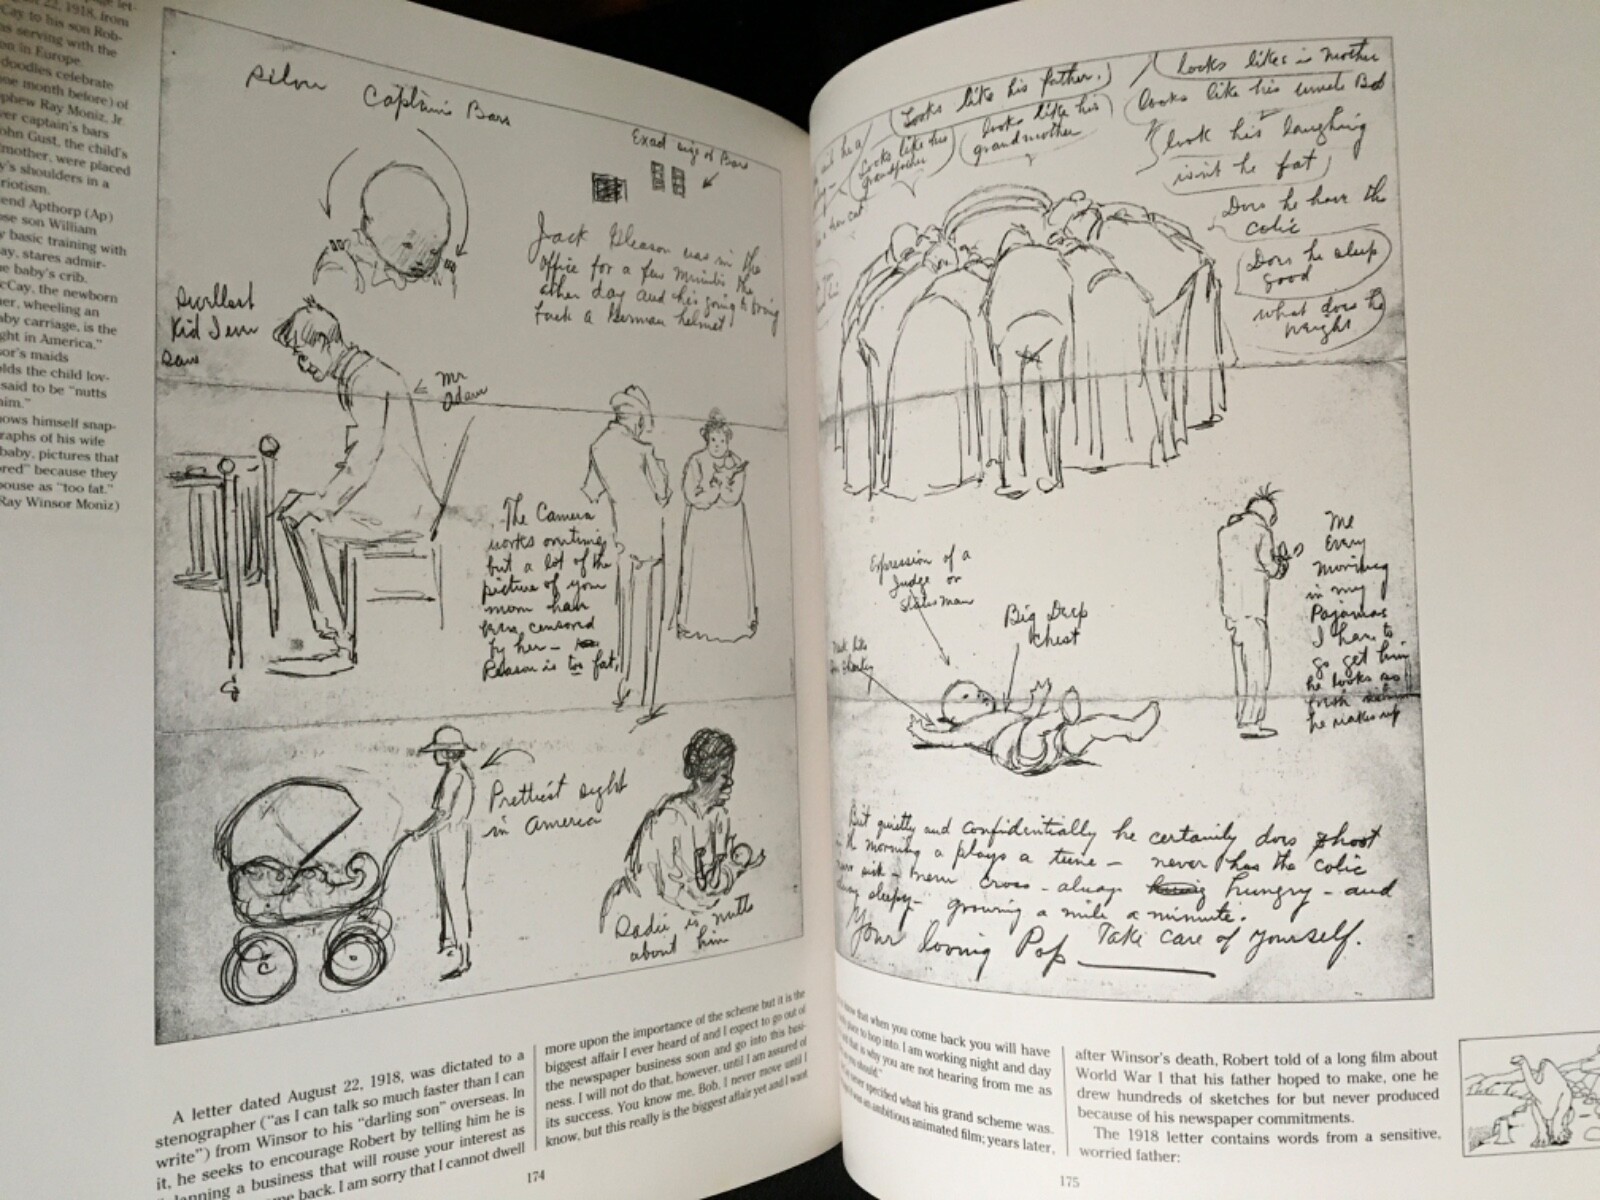 22, 1918, from
Cay to his son Rob-
as serving with the
on in Europe.
doodles celebrate
one month before) of
phew Ray Moniz, Jr.
ver captain's bars
ohn Gust, the child's
mother, were placed
y's shoulders in a
riotism.
end Apthorp (Ap)
ose son William
y basic training with
ay, stares admir-
e baby's crib.
cCay, the newborn
er, wheeling an
aby carriage, is the
ght in America."
sor's maids
olds the child lov-
said to be "nutts
him."
ows himself snap-
raphs of his wife
baby, pictures that
ored" because they
pouse as "too fat."
Ray Winsor Moniz)
Silver Captain's Bars
Exact size of Bars
Jack Gleason was in the
office for a few minutes the
other day and he's going to bring
back a German helmet
Swellest
Kid I ever
saw
Mr
Adam
The Camera
works overtime
but a lot of the
picture of your
mom have
been censored
by her -
Reason is too fat.
Prettiest sight
in America
Sadie is nutts
about him
A letter dated August 22, 1918, was dictated to a
stenographer ("as I can talk so much faster than I can
write") from Winsor to his "darling son" overseas. In
it, he seeks to encourage Robert by telling him he is
"planning a business that will rouse your interest as
me back. I am sorry that I cannot dwell
more upon the importance of the scheme but it is the
biggest affair I ever heard of and I expect to go out of
the newspaper business soon and go into this busi-
ness. I will not do that, however, until I am assured of
its success. You know me, Bob, I never move until I
know, but this really is the biggest affair yet and I want
174
Looks like his father.
looks like is mother
Looks like his grandfather
looks like his grandmother
looks like his uncle Bob
look his laughing
isn't he fat
Does he have the
colic
Does he sleep
good
what does he
weigh
Expression of a
Judge or
statesman
Big Deep
chest
Me
Every
morning
in my
Pajamas
I have to
go get him
he looks so
fresh when
he wakes up
But quietly and confidentially he certainly does shoot
in the morning a plays a tune - never has the colic
never sick - never cross - always hungry - and
always sleepy - growing a mile a minute.
Your loving Pop Take care of yourself.
know that when you come back you will have
place to hop into. I am working night and day
that is why you are not hearing from me as
you should."
never specified what his grand scheme was.
it was an ambitious animated film; years later,
after Winsor's death, Robert told of a long film about
World War I that his father hoped to make, one he
drew hundreds of sketches for but never produced
because of his newspaper commitments.
The 1918 letter contains words from a sensitive,
worried father:
175